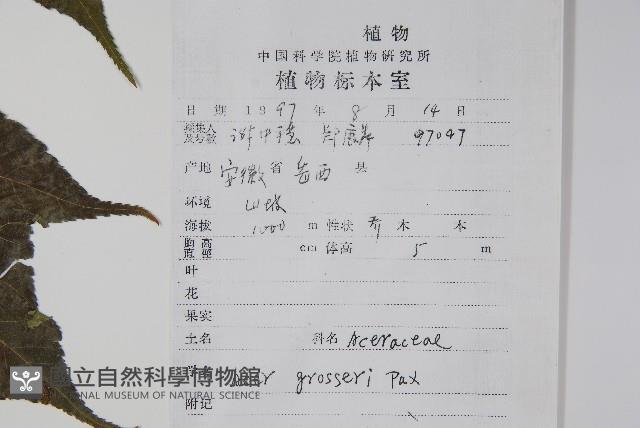 植物
中国科学院植物研究所
植物标本室
日期 1997 年 8 月 14 日
采集人及号数 97047
产地 安徽 省 岳西 县
环境 山坡
海拔 1000 m 性状 乔木 本
胸高直径 cm 体高 5 m
叶
花
果实
土名 科名 Aceraceae
学名 Acer grosseri Pax
附记
國立自然科學博物館
NATIONAL MUSEUM OF NATURAL SCIENCE